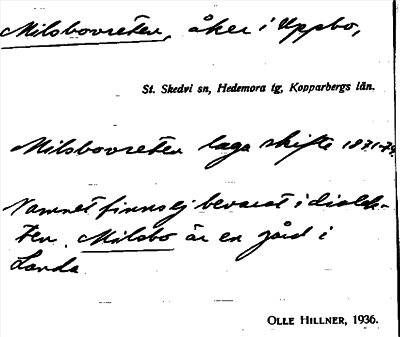 Milsbovreten, åker i Uppbo,
St. Skedvi sn, Hedemora tg, Kopparbergs län.
Milsbovreten laga skifte 1871-74.
Namnet finns ej bevarat i dialek-
ten. Milsbo är en gård i
Landa
OLLE HILLNER, 1936.